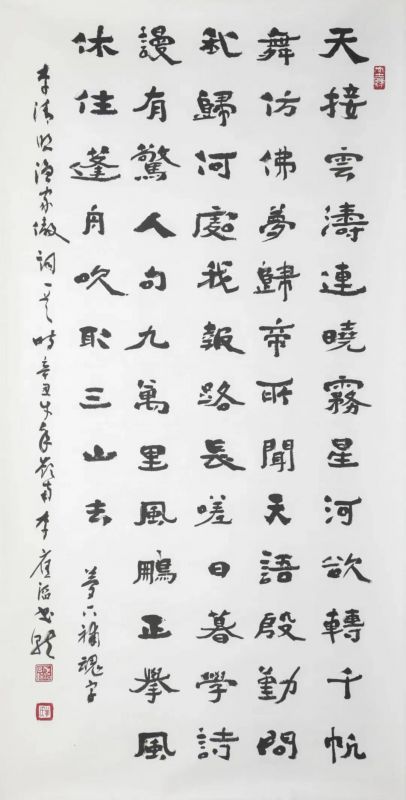 天接雲濤連曉霧星河欲轉千帆
舞仿佛夢歸帝所聞天語殷勤問
我歸何處我報路長嗟日暮學詩
謾有驚人句九萬里風鵬正舉風
休住蓬舟吹取三山去
夢下補魂字
李清照漁家傲詞一首時辛丑嶺南李